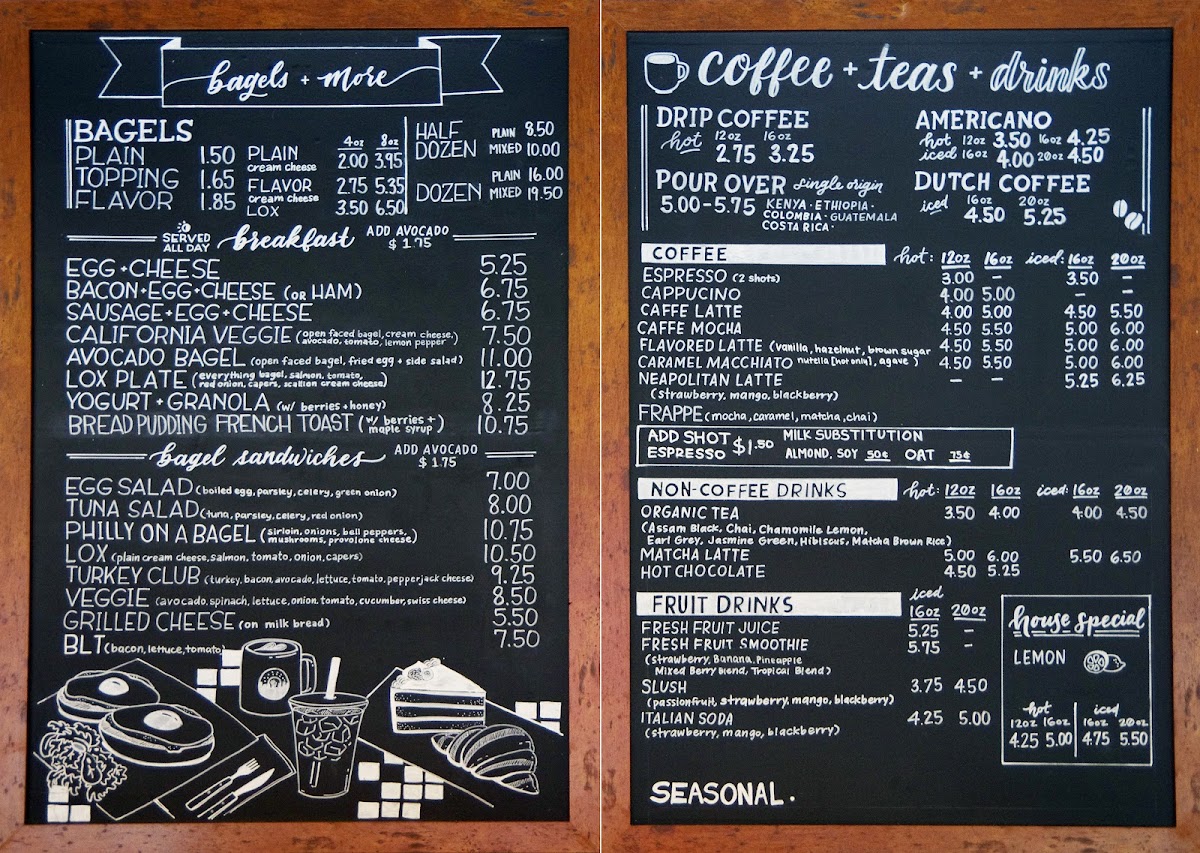 bagels + more
BAGELS
PLAIN 1.50
TOPPING 1.65
FLAVOR 1.85
4oz 8oz
PLAIN 2.00 3.95
cream cheese
FLAVOR 2.75 5.35
cream cheese
LOX 3.50 6.50
HALF DOZEN PLAIN 8.50
MIXED 10.00
DOZEN PLAIN 16.00
MIXED 19.50
SERVED ALL DAY breakfast ADD AVOCADO $1.75
EGG + CHEESE 5.25
BACON + EGG + CHEESE (OR HAM) 6.75
SAUSAGE + EGG + CHEESE 6.75
CALIFORNIA VEGGIE (open faced bagel, cream cheese, avocado, tomato, lemon pepper) 7.50
AVOCADO BAGEL (open faced bagel, fried egg + side salad) 11.00
LOX PLATE (everything bagel, salmon, tomato, red onion, capers, scallion cream cheese) 12.75
YOGURT + GRANOLA (w/ berries + honey) 8.25
BREAD PUDDING FRENCH TOAST (w/ berries + maple syrup) 10.75
bagel sandwiches ADD AVOCADO $1.75
EGG SALAD (boiled egg, parsley, celery, green onion) 7.00
TUNA SALAD (tuna, parsley, celery, red onion) 8.00
PHILLY ON A BAGEL (sirloin, onions, bell peppers, mushrooms, provolone cheese) 10.75
LOX (plain cream cheese, salmon, tomato, onion, capers) 10.50
TURKEY CLUB (turkey, bacon, avocado, lettuce, tomato, pepperjack cheese) 9.25
VEGGIE (avocado, spinach, lettuce, onion, tomato, cucumber, swiss cheese) 8.50
GRILLED CHEESE (on milk bread) 5.50
BLT (bacon, lettuce, tomato) 7.50
coffee + teas + drinks
DRIP COFFEE
hot 12oz 16oz
2.75 3.25
AMERICANO
hot 12oz 3.50 16oz 4.25
iced 16oz 4.00 20oz 4.50
POUR OVER single origin
5.00-5.75 KENYA · ETHIOPIA ·
COLOMBIA · GUATEMALA
COSTA RICA ·
DUTCH COFFEE
iced 16oz 20oz
4.50 5.25
COFFEE hot: 12oz 16oz iced: 16oz 20oz
ESPRESSO (2 shots) 3.00 – 3.50 –
CAPPUCINO 4.00 5.00 – –
CAFFE LATTE 4.00 5.00 4.50 5.50
CAFFE MOCHA 4.50 5.50 5.00 6.00
FLAVORED LATTE (vanilla, hazelnut, brown sugar 4.50 5.50 5.00 6.00
nutella [hot only], agave)
CARAMEL MACCHIATO 4.50 5.50 5.00 6.00
NEAPOLITAN LATTE – – 5.25 6.25
(strawberry, mango, blackberry)
FRAPPE (mocha, caramel, matcha, chai)
ADD SHOT ESPRESSO $1.50
MILK SUBSTITUTION
ALMOND, SOY 50¢ OAT 75¢
NON-COFFEE DRINKS hot: 12oz 16oz iced: 16oz 20oz
ORGANIC TEA 3.50 4.00 4.00 4.50
(Assam Black, Chai, Chamomile Lemon,
Earl Grey, Jasmine Green, Hibiscus, Matcha Brown Rice)
MATCHA LATTE 5.00 6.00 5.50 6.50
HOT CHOCOLATE 4.50 5.25
FRUIT DRINKS iced 16oz 20oz
FRESH FRUIT JUICE 5.25 –
FRESH FRUIT SMOOTHIE 5.75 –
(strawberry, Banana, Pineapple
Mixed Berry Blend, Tropical Blend)
SLUSH 3.75 4.50
(passionfruit, strawberry, mango, blackberry)
ITALIAN SODA 4.25 5.00
(strawberry, mango, blackberry)
house special
LEMON
hot iced
12oz 16oz 16oz 20oz
4.25 5.00 4.75 5.50
SEASONAL.